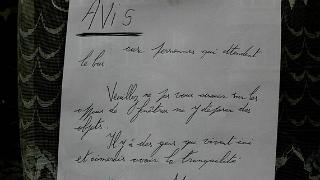 AVIS
aux personnes qui attendent
le bus
Veuillez ne pas vous asseoir sur les
appuis de fenêtres ni y déposer des
objets.
Il y a des gens qui vivent ici
et aimerais avoir la tranquilité